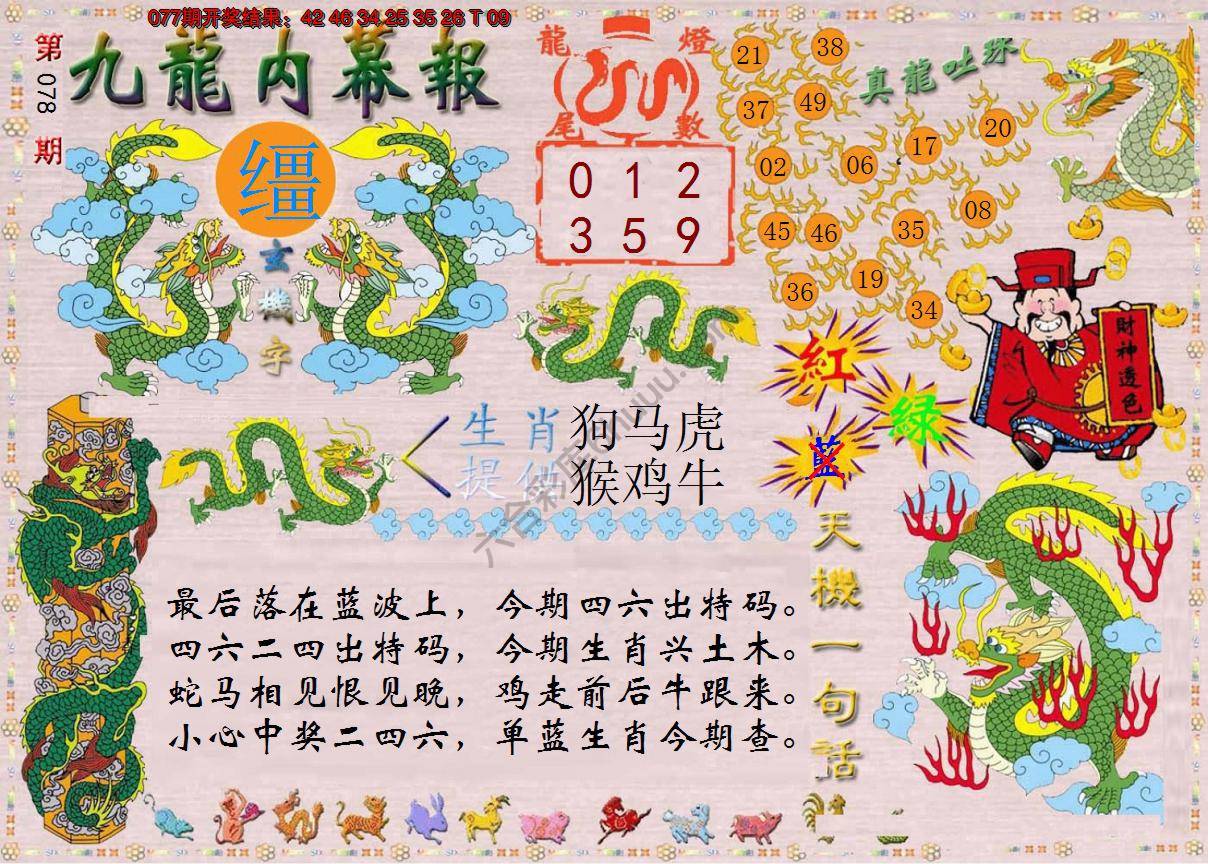 077期开奖结果：42 46 34 25 35 26 T 09
第078期
九龍内幕報
缰
玄機字
龍燈
尾數
0 1 2
3 5 9
真龍吐珠
21 38
37 49
02 06 17 20
45 46 35 08
36 19 34
財神透色
紅
綠
藍
生肖
提供
狗马虎
猴鸡牛
最后落在蓝波上，今期四六出特码。
四六二四出特码，今期生肖兴土木。
蛇马相见恨见晚，鸡走前后牛跟来。
小心中奖二四六，单蓝生肖今期查。
天機一句話